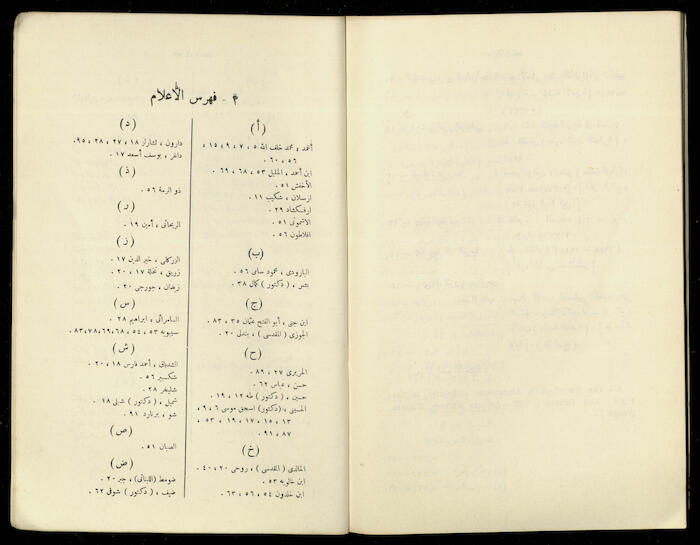 ٣ ـ فهرس الأعلام
( أ )
أحمد ، محمد خلف الله ٥ ، ٧ ، ٩ ، ١٥ ،
٥٦ ، ٦٠ .
ابن أحمد ، الخليل ٥٣ ، ٦٨ ، ٦٩ .
الأخفش ٥١ .
ارسلان ، شكيب ١١ .
ارفكشاد ٢٩ .
الاشموني ٥١ .
افلاطون ٥٦ .
(ب)
البارودي ، محمود سامي ٥٦ .
بشر ، ( دكتور ) كمال ٣٨ .
(ج)
ابن جني ، أبو الفتح عثمان ٣٥ ، ٨٣ .
الجوزي ( المقدسي ) ، بندلي ٢٠ .
(ح)
الحريري ٢٧ ، ٨٩ .
حسن ، عباس ٦٢ .
حسين ، ( دكتور ) طه ١٢ ، ١٩ .
الحسيني ، (دكتور) اسحق موسى ٦ ، ٩ ،
١٣ ، ١٥ ، ١٧ ، ١٩ ، ٥٣ ،
٨٧ ، ٩١ .
(خ)
الخالدي ( المقدسي ) ، روحي ٢٠ ، ٤٠ .
ابن خالويه ٥٣ .
ابن خلدون ٥٤ ، ٥٦ ، ٦٣ .
(د)
دارون ، تشارلز ١٨ ، ٢٧ ، ٢٨ ، ٩٥ .
داغر ، يوسف أسعد ١٧ .
(ذ)
ذو الرمة ٥٦ .
(ر)
الريحاني ، أمين ١٩ .
(ز)
الزركلي ، خير الدين ١٧ .
زريق ، نخلة ١٧ ، ٢٠ .
زيدان ، جورجي ٢٠ .
(س)
السامرائي ، ابراهيم ٢٨ .
سيبويه ٥٣ ، ٥٤ ، ٦٨ ،٦٩ ،٧٨ ،٨٣ .
(ش)
الشدياق ، أحمد فارس ١٨ ، ٢٠ .
شكسبير ٥٦ .
شليخر ٢٨ .
شميل ، ( دكتور ) شبلي ١٨ .
شو ، برنارد ٩١ .
(ص)
الصبان ٥١ .
(ض)
ضومط (اللبناني) ، جبر ٢٠ .
ضيف ، ( دكتور ) شوقي ٦٢ .